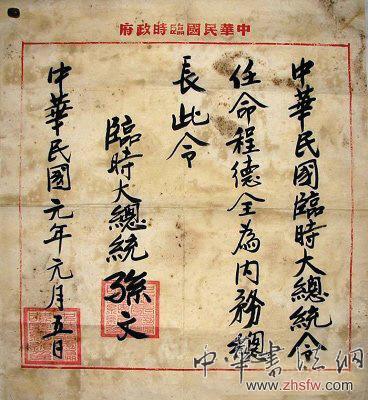 中華民國臨時政府
中華民國臨時大總統令
任命程德全為內務總
長此令
臨時大總統孫文
中華民國元年元月五日
中华书法网
www.zhsfw.com